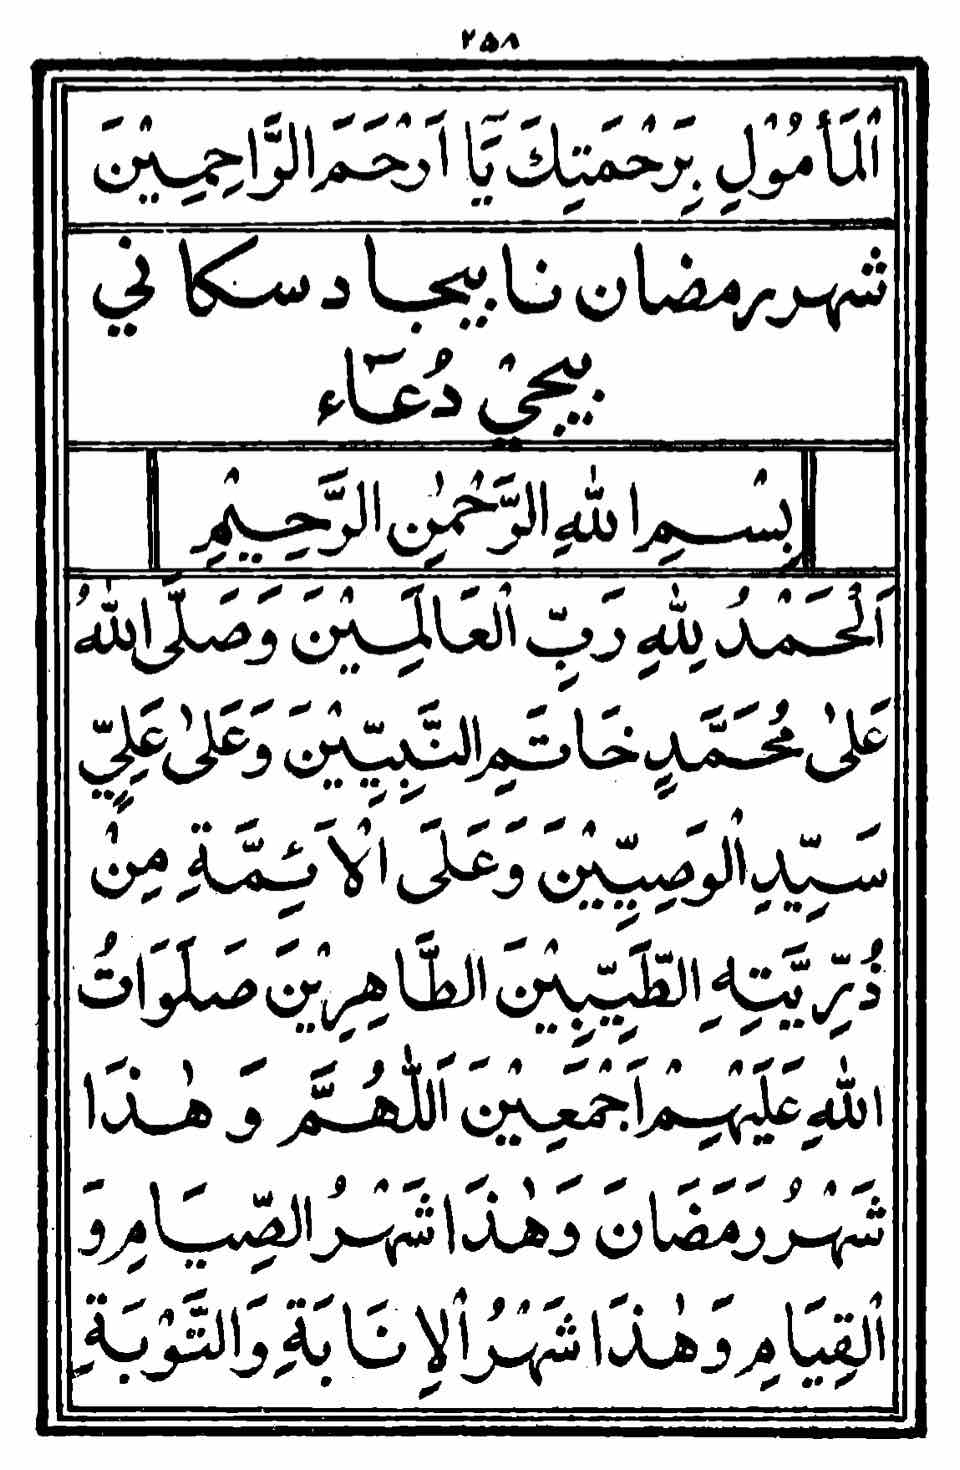 ۲۵۸
اْلمَأْمُوْلِ بِرَحْمَتِكَ يَآ اَرْحَمَ الرَّاحِمِيْنَ
شهر رمضان نا بيجا دسكا ني
بيجيْ دُعَآء
بِسْمِ اللهِ الرَّحْمٰنِ الرَّحِيْمِ
اَلْحَمْدُ لِلّٰهِ رَبِّ اْلعَالَمِيْنَ وَصَلَّى اللهُ
عَلىٰ مُحَمَّدٍ خَاتَمِ النَّبِيِّيْنَ وَعَلىٰ عَلِيٍّ
سَيِّدِ اْلوَصِيِّيْنَ وَعَلَى اْلاَئِمَّةِ مِنْ
ذُرِّيَّتِهِ الطَّيِّبِيْنَ الطَّاهِرِيْنَ صَلَوَاتُ
اللهِ عَلَيْهِمْ اَجْمَعِيْنَ اَللّٰهُمَّ وَ هٰذَا
شَهْرُ رَمَضَانَ وَهٰذَا شَهْرُ الصِّيَامِ وَ
اْلقِيَامِ وَهٰذَا شَهْرُ اْلاِنَابَةِ وَالتَّوْبَةِ